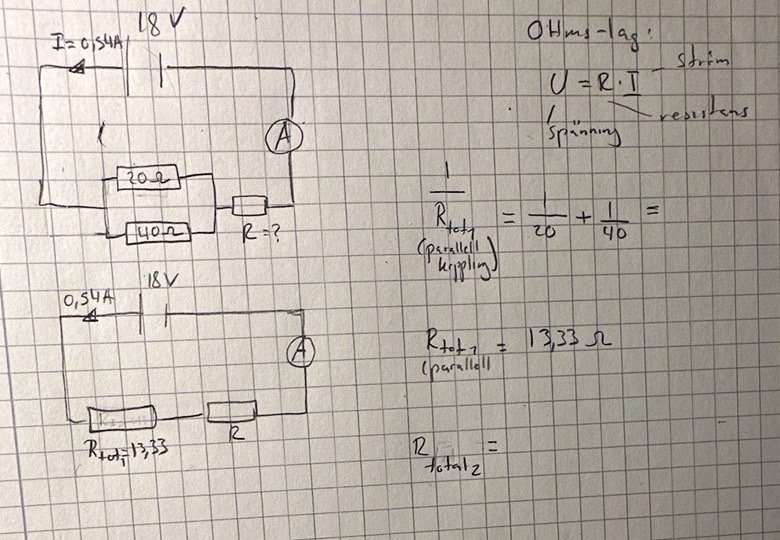 18 V
I = 0,54A
A
20Ω
40Ω
R = ?
18V
0,54A
A
R tot1 = 13,33
R
OHms-lag:
U = R · I
ström
resistans
spänning
1/R tot1 = 1/20 + 1/40 =
(parallell
koppling)
R tot1 = 13,33 Ω
(parallell
R total2 =